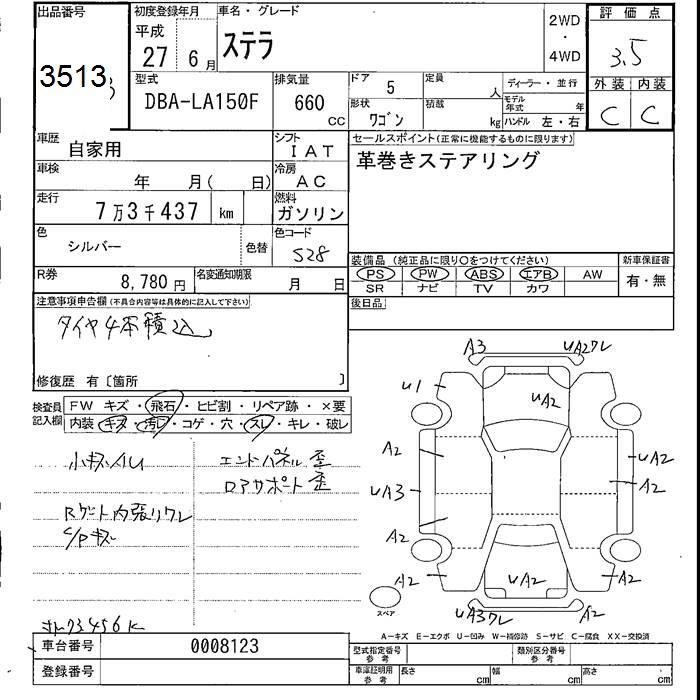 出品番号 初度登録年月 車名・グレード 評価点
3513
平成 27 6月 ステラ 2WD・4WD 3.5
型式 排気量 ドア 5 定員 人 ディーラー・並行 外装 内装
DBA-LA150F 660 CC 形状 ワゴン 積載 kg モデル年式 年 ハンドル 左・右 C C
車歴 自家用 シフト IAT セールスポイント(正常に機能するものに限ります)
革巻きステアリング
車検 年 月( 日) 冷房 AC
走行 7万3千437 km 燃料 ガソリン
色 シルバー 色替 色コード S28
装備品 (純正品に限り○をつけてください) 新車保証書
R券 8,780円 名変通知期限 月 日 PS PW ABS エアB AW 有・無
SR ナビ TV カワ
注意事項申告欄(不具合内容等は具体的に記入して下さい) 後日品
タイヤ4本積込
修復歴 有〔箇所 〕
検査員記入欄 FW キズ・飛石・ヒビ割・リペア跡・×要
内装・キズ・汚レ・コゲ・穴・スレ・キレ・破レ
小キズ凹 エンドパネル歪
ロアサポート歪
Rゲート内張リワレ
C/Pキズ
A3 UA2ワレ
U1 UA2
A2 UA2
UA3 A2
A2
A2 UA2 A2
UA3ワレ A2
スペア
73456K
A-キズ E-エクボ U-凹み W-補修跡 S-サビ C-腐食 XX-交換済
車台番号 0008123 型式指定番号 参考 類別区分番号 参考
登録番号 車庫証明用 参考 長さ cm 幅 cm 高さ cm